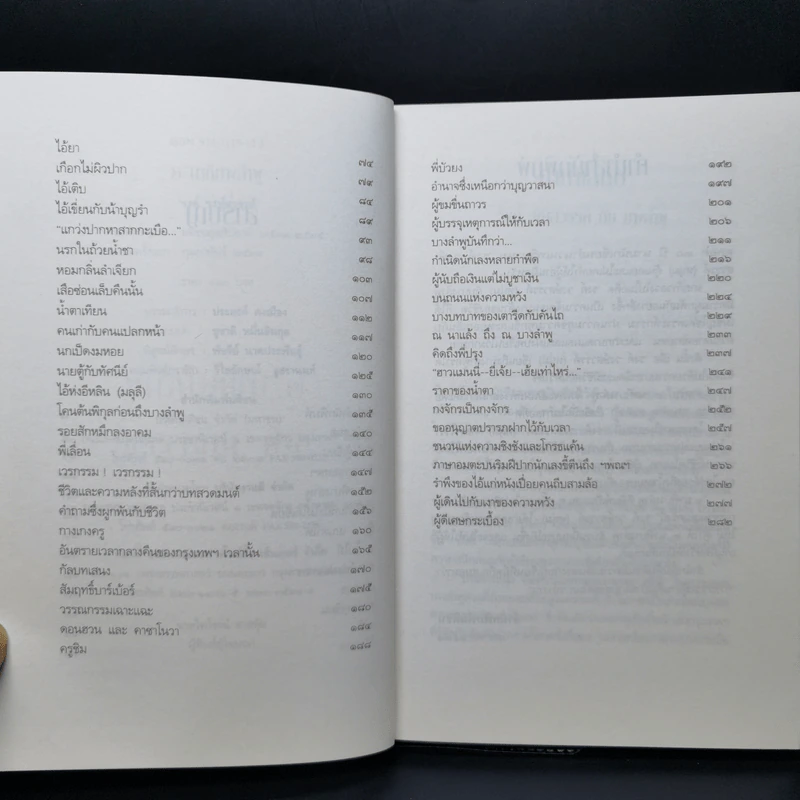 ไอ้ยา ๗๔
เกือกไม่ผิวปาก ๗๙
ไอ้เติบ ๘๔
ไอ้เขี่ยนกับน้าบุญรำ ๘๙
"แกว่งปากหาสากกะเบือ..." ๙๓
นรกในถ้วยน้ำชา ๙๘
หอมกลิ่นลำเจียก ๑๐๓
เสือซ่อนเล็บคืนนั้น ๑๐๗
น้ำตาเทียน ๑๑๒
คนเก่ากับคนแปลกหน้า ๑๑๗
นกเป็ดงมหอย ๑๒๐
นายตู้กับทัศนีย์ ๑๒๕
ไอ้ห่งอีหลิน (มลุลี) ๑๓๐
โดนต้นพิกุลก่อนถึงบางลำพู ๑๓๕
รอยสักหมึกลงอาคม ๑๔๐
พี่เลื่อน ๑๔๔
เวรกรรม ! เวรกรรม ! ๑๔๗
ชีวิตและความหลังที่สั้นกว่าบทสวดมนต์ ๑๕๒
คำถามซึ่งผูกพันกับชีวิต ๑๕๖
กางเกงครู ๑๖๐
อันตรายเวลากลางคืนของกรุงเทพฯ เวลานั้น ๑๖๕
กัลบทเสนง ๑๗๐
สัมฤทธิ์บาร์เบ้อร์ ๑๗๕
วรรณกรรมเฉาะแฉะ ๑๘๐
ดอนฮวน และ คาซาโนวา ๑๘๔
ครูซิม ๑๘๘
พี่บัวยง ๑๙๒
อำนาจซึ่งเหนือกว่าบุญวาสนา ๑๙๗
ผู้ขมขื่นถาวร ๒๐๑
ผู้บรรจุเหตุการณ์ให้กับเวลา ๒๐๖
บางลำพูบันทึกว่า... ๒๑๑
กำเนิดนักเลงหลายกำพืด ๒๑๖
ผู้นับถือเงินแต่ไม่บูชาเงิน ๒๒๐
บนถนนแห่งความหวัง ๒๒๔
บางบทบาทของเตารีดกับคันไถ ๒๒๙
ณ นาแล้ง ถึง ณ บางลำพู ๒๓๓
คิดถึงพี่ปรุง ๒๓๗
"ฮาวแมนนี่--ยี่เจ้ย--เอ้ยเท่าไหร่..." ๒๔๑
ราคาของน้ำตา ๒๔๗
กงจักรเป็นกงจักร ๒๕๒
ขออนุญาตปรารภฝากไว้กับเวลา
ชนวนแห่งความชิงชังและโกรธแค้น ๒๖๑
ภาษาอมตะบนริมฝีปากนักเลงขี้ตีนถึง ฯพณฯ ๒๖๖
รำพึงของไอ้แก่หนังเปื่อยคนถีบสามล้อ ๒๗๒
ผู้เดินไปกับเงาของความหวัง ๒๗๗
ผู้ดีเศษกระเบื้อง ๒๘๒